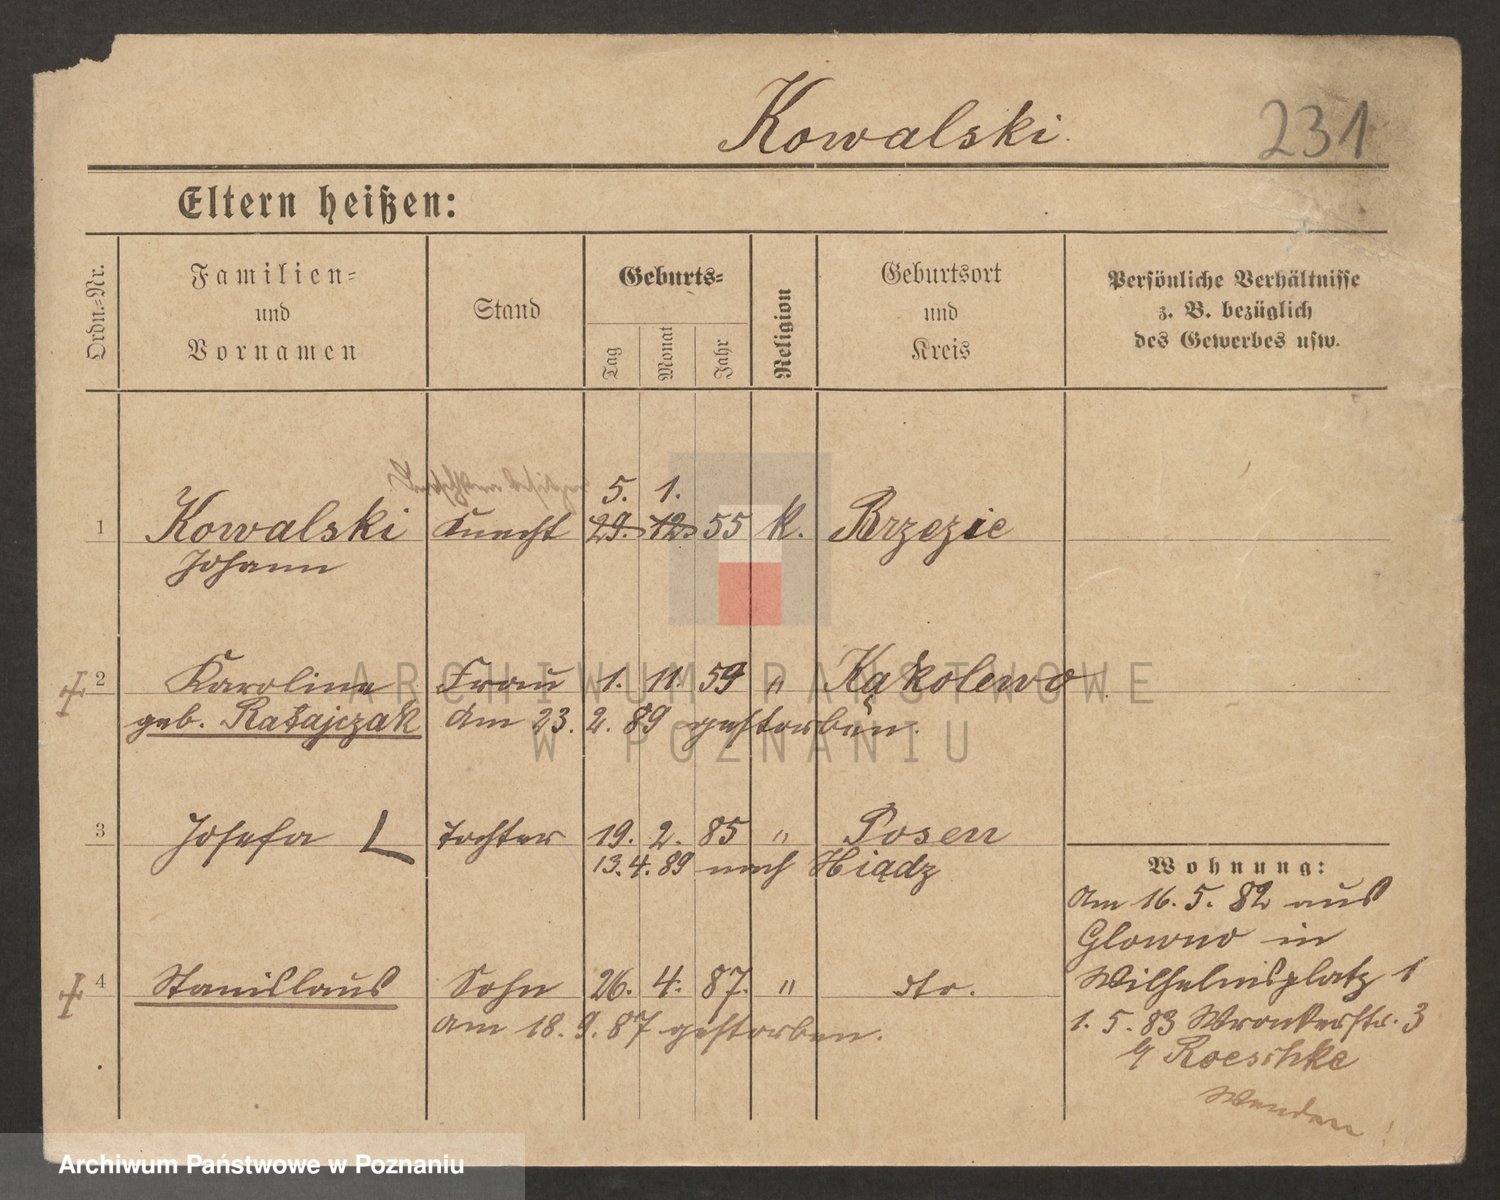 Kowalski
231
Eltern heißen:
Ordn.-Nr.
Familien-
und
Vornamen
Stand
Geburts-
Tag
Monat
Jahr
Religion
Geburtsort
und
Kreis
Persönliche Verhältnisse
z. B. bezüglich
des Gewerbes usw.
5. 1.
1 Kowalski Knecht 29. 12. 55 k. Brzezie
Johann
2 Karoline Frau 1. 11. 59 " Kąkolewo
geb. Ratajczak Am 23. 2. 89 gestorben.
3 Josefa Tochter 19. 2. 85 " Posen
13. 4. 89 nach
4 Stanislaus Sohn 26. 4. 87. " dto.
Am 18. 9. 87 gestorben.
Wohnung:
Am 16. 5. 82 aus
Glowno in
Wilhelmsplatz 1
1. 5. 83 Wronkerstr. 3
Roeschke
Wenden!
ARCHIWUM PAŃSTWOWE
W POZNANIU
Archiwum Państwowe w Poznaniu